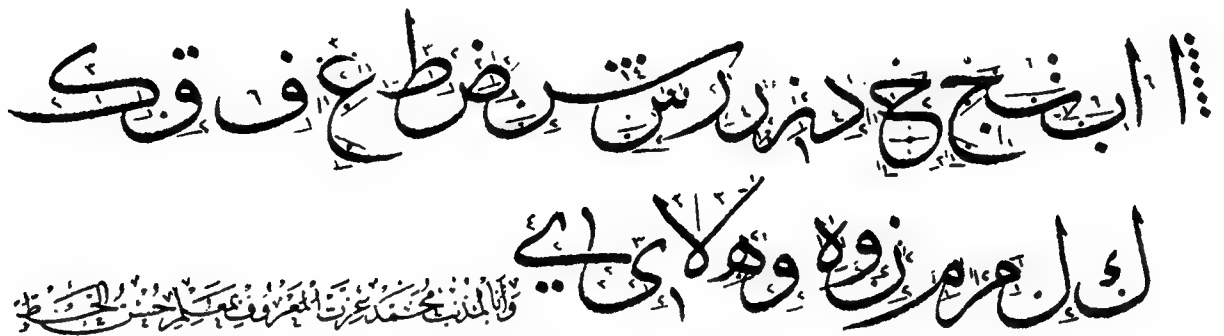 ا ا ب ت ج خ د ز ر ر س ش ض ط غ ف ق ك
ك ل م م ن و ه و ه لا ى ي
وأنا المذنب محمد عزت المعروف بمعلم حسن الخط